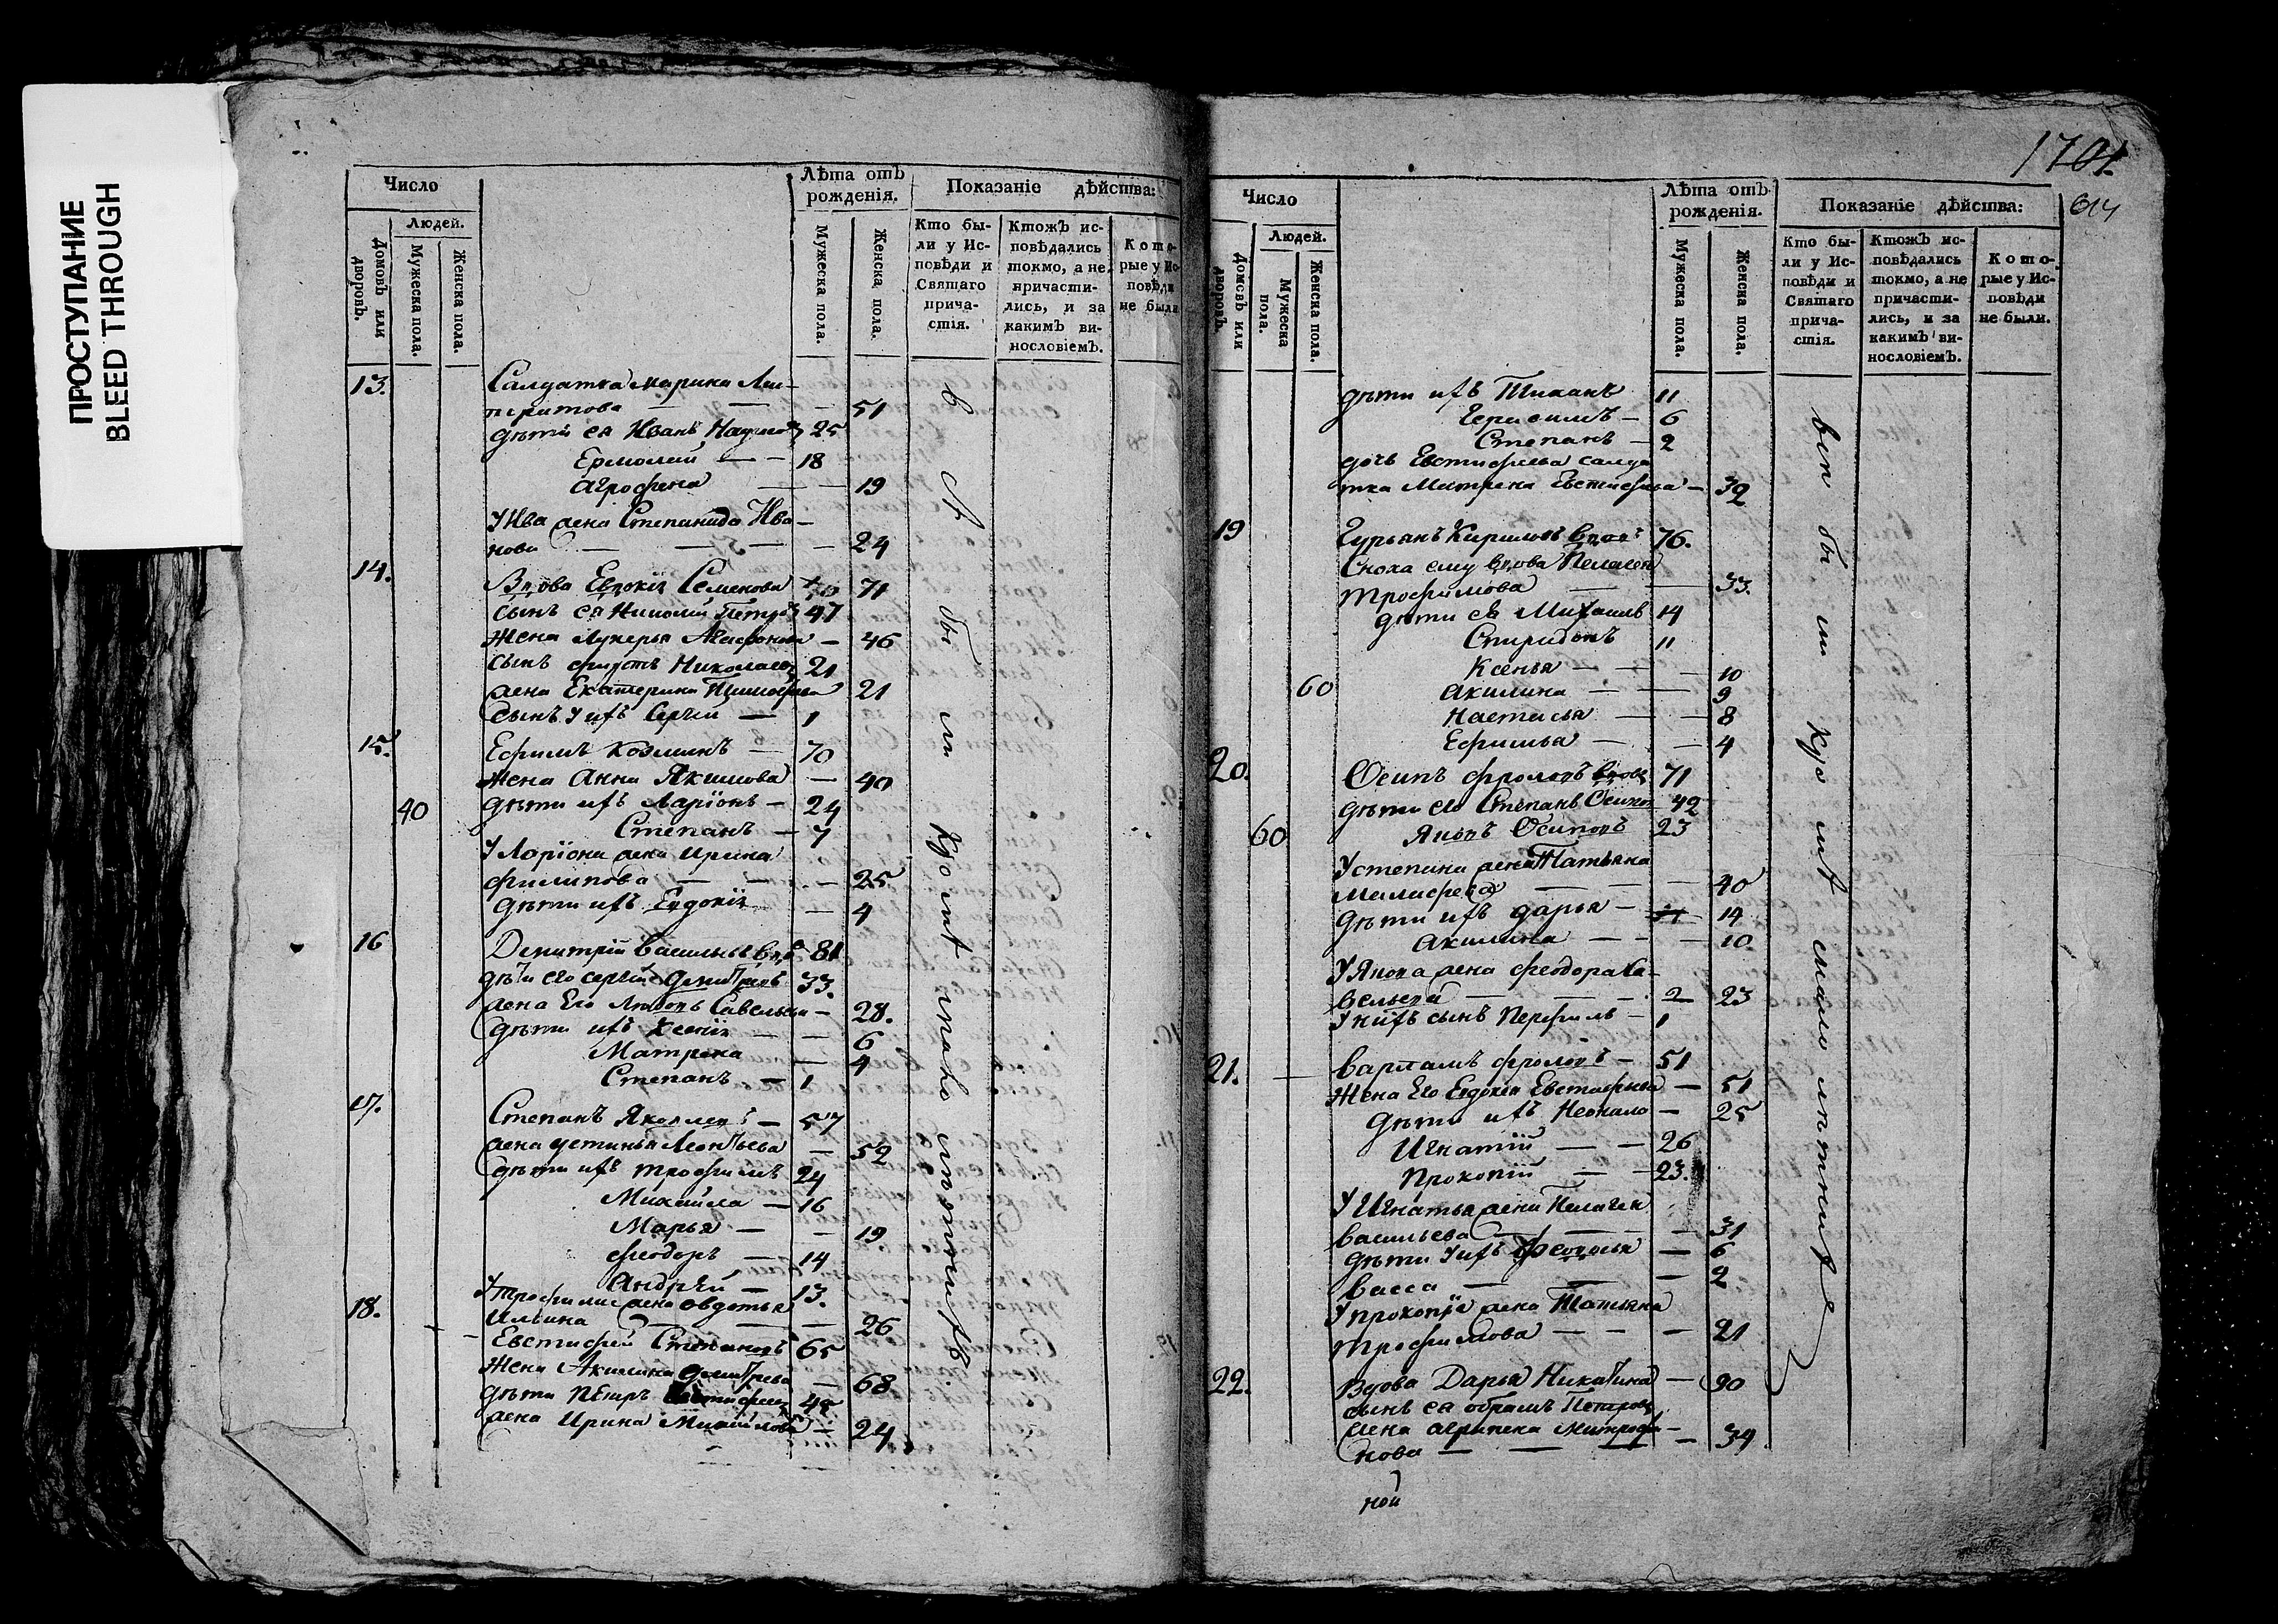 ПРОСТУПАНИЕ
BLEED THROUGH
Число
Лѣта отъ рожденія.
Показаніе дѣйства:
Людей.
Домовъ или дворовъ.
Мужеска пола.
Женска пола.
Мужеска пола.
Женска пола.
Кто были у Исповѣди и Святаго причастія.
Ктожъ исповѣдались токмо, а не причастились, и за какимъ винословіемъ.
Которые у Исповѣди не были
13. Салдатка марина
51
дѣти ея Иванъ 25
Ермолай — — 18
Агрофена — — 19
У Ива жена Степанида Ива-
нова — — — 24
14. Вдова Евдокія Семенова 71
сынъ ея Николай Петровъ 47
жена Лукерья — 46
сынъ Николаевъ 21
жена Екатерина Тимофѣева 21
сынъ у ихъ Сергѣй — 1
15. Ефимъ Козминъ — 70
жена Анна Якимова — 40
40 дѣти ихъ Ларіонъ — 24
Степанъ — 7
У Ларіона жена Ирина
филипова — — 25
дѣти ихъ Евдокія — 4
16 Демитрій васильевъ 81
дѣти его сергѣй Демитріевъ 33.
жена Его Савельева — 28.
дѣти ихъ Ксенія — — 6
Матрена — 4
Степанъ — 1
17. Степанъ Яковлевъ — 57
жена устинья Леонтьева — 52
дѣти ихъ трофимъ 24
Михаила — 16
Марья — — 19
феодоръ — 14
Андрей — 13.
У трофима жена овдотья
Ильина — — 26
18. Евстифей Степановъ 65
жена Акилина Демитрева — 68
дѣти Петръ 45
жена Ирина Михайлова — 24
1701.
614
Число
Лѣта отъ рожденія.
Показаніе дѣйства:
Людей.
Домовъ или дворовъ.
Мужеска пола.
Женска пола.
Мужеска пола.
Женска пола.
Кто были у Исповѣди и Святаго причастія.
Ктожъ исповѣдались токмо, а не причастились, и за какимъ винословіемъ.
Которые у Исповѣди не были.
дѣти ихъ 11
Герасимъ — 6
Степанъ — 2
дочь Евстифеева салда
тка Матрена Евстифева — 32
19 Гурьянъ Кириловъ вдовъ 76.
Сноха ему вдова Пелагея
трофимова — 33.
дѣти ея Михаилъ 14
Спиридонъ 11
Ксенья — — 10
60 акилина — — 9
Настасья — — 8
Ефимья — — 4
20. Осипъ фроловъ вдовъ 71
дѣти его Степанъ Осипов 42
60 Яковъ Осиповъ 23
У степана жена Татьяна
40
дѣти ихъ дарья — 14
Акилина — — 10.
У Якова жена феодора Са-
вельева — — 23
У нихъ сынъ Перфилъ — 1
21. варламъ фроловъ — 51
жена Его Евдокія Евстафьева — 51
дѣти ихъ Неонила — 25
Игнатій — — 26
Прокопій — 23.
У Игнатья жена Пелагея
васильева — — 31
дѣти у ихъ Федосья — 6
васса — — 2
У прокопія жена Татьяна
трофимова — — — 21
22. Вдова Дарья Никитина — 90
сынъ ея Петровъ
жена агрипена митрофа-
нова — — — 34
ной